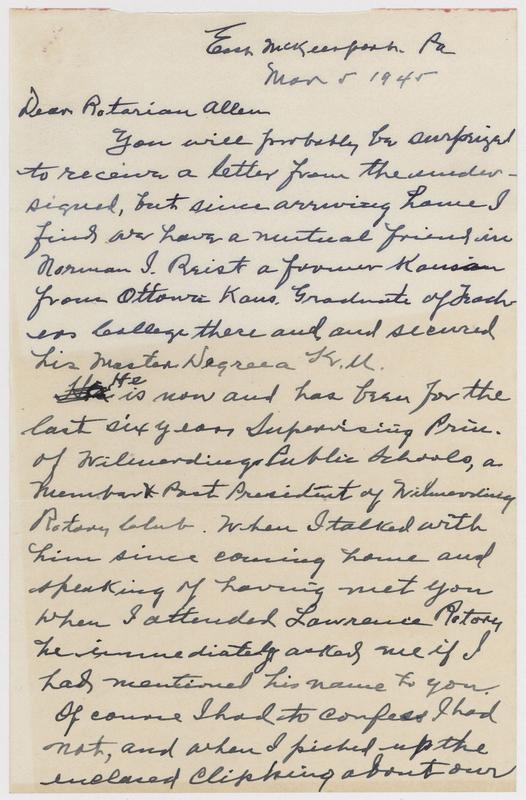 East McKeesport. Pa
Mar 5 1945
Dear Rotarian Allen
You will probably be surprized
to receive a letter from the under-
signed, but since arriving home I
find we have a mutual friend in
Norman I. Reist a former Kansan
from Ottawa Kans. Graduate of Teach
ers College there and and secured
his Master Degree a K.U.
He is now and has been for the
last six years Supervising Prin.
of Wilmerdings Public Schools, a
member & Past President of Wilmerding
Rotary Club. When I talked with
him since coming home and
speaking of having met you
when I attended Lawrence Rotary
he immediately asked me if I
had mentioned his name to you.
Of course I had to confess I had
not, and when I picked up the
enclosed clipping about our